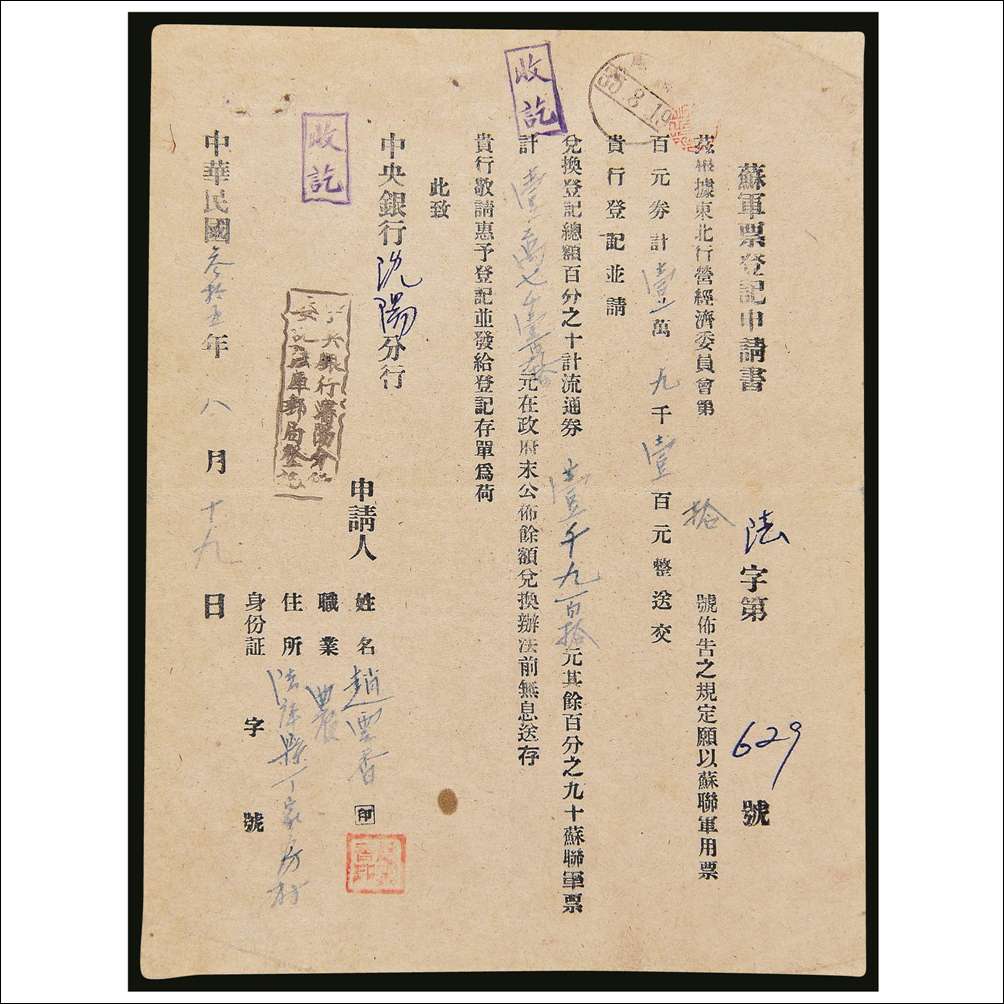 蘇軍票登記申請書 法字第 629 號
茲遵據東北行營經濟委員會第 拾 號佈告之規定願以蘇聯軍用票
百元券計壹萬九千壹百元整送交
貴行登記並請
兌換登記總額百分之十計流通券壹千九百拾元其餘百分之九十蘇聯軍票
計壹萬七千壹百 元在政府未公佈餘額兌換辦法前無息送存
貴行敬請惠予登記並發給登記存單為荷
此致
中央銀行沈陽分行
申請人 姓名 趙雲香 印
職業 農
住所 法庫縣丁家房村
身份証 字 號
中華民國叁拾五年八月十九日
收訖
收訖
35.8.19
中央銀行瀋陽分行
委託法庫郵局登記